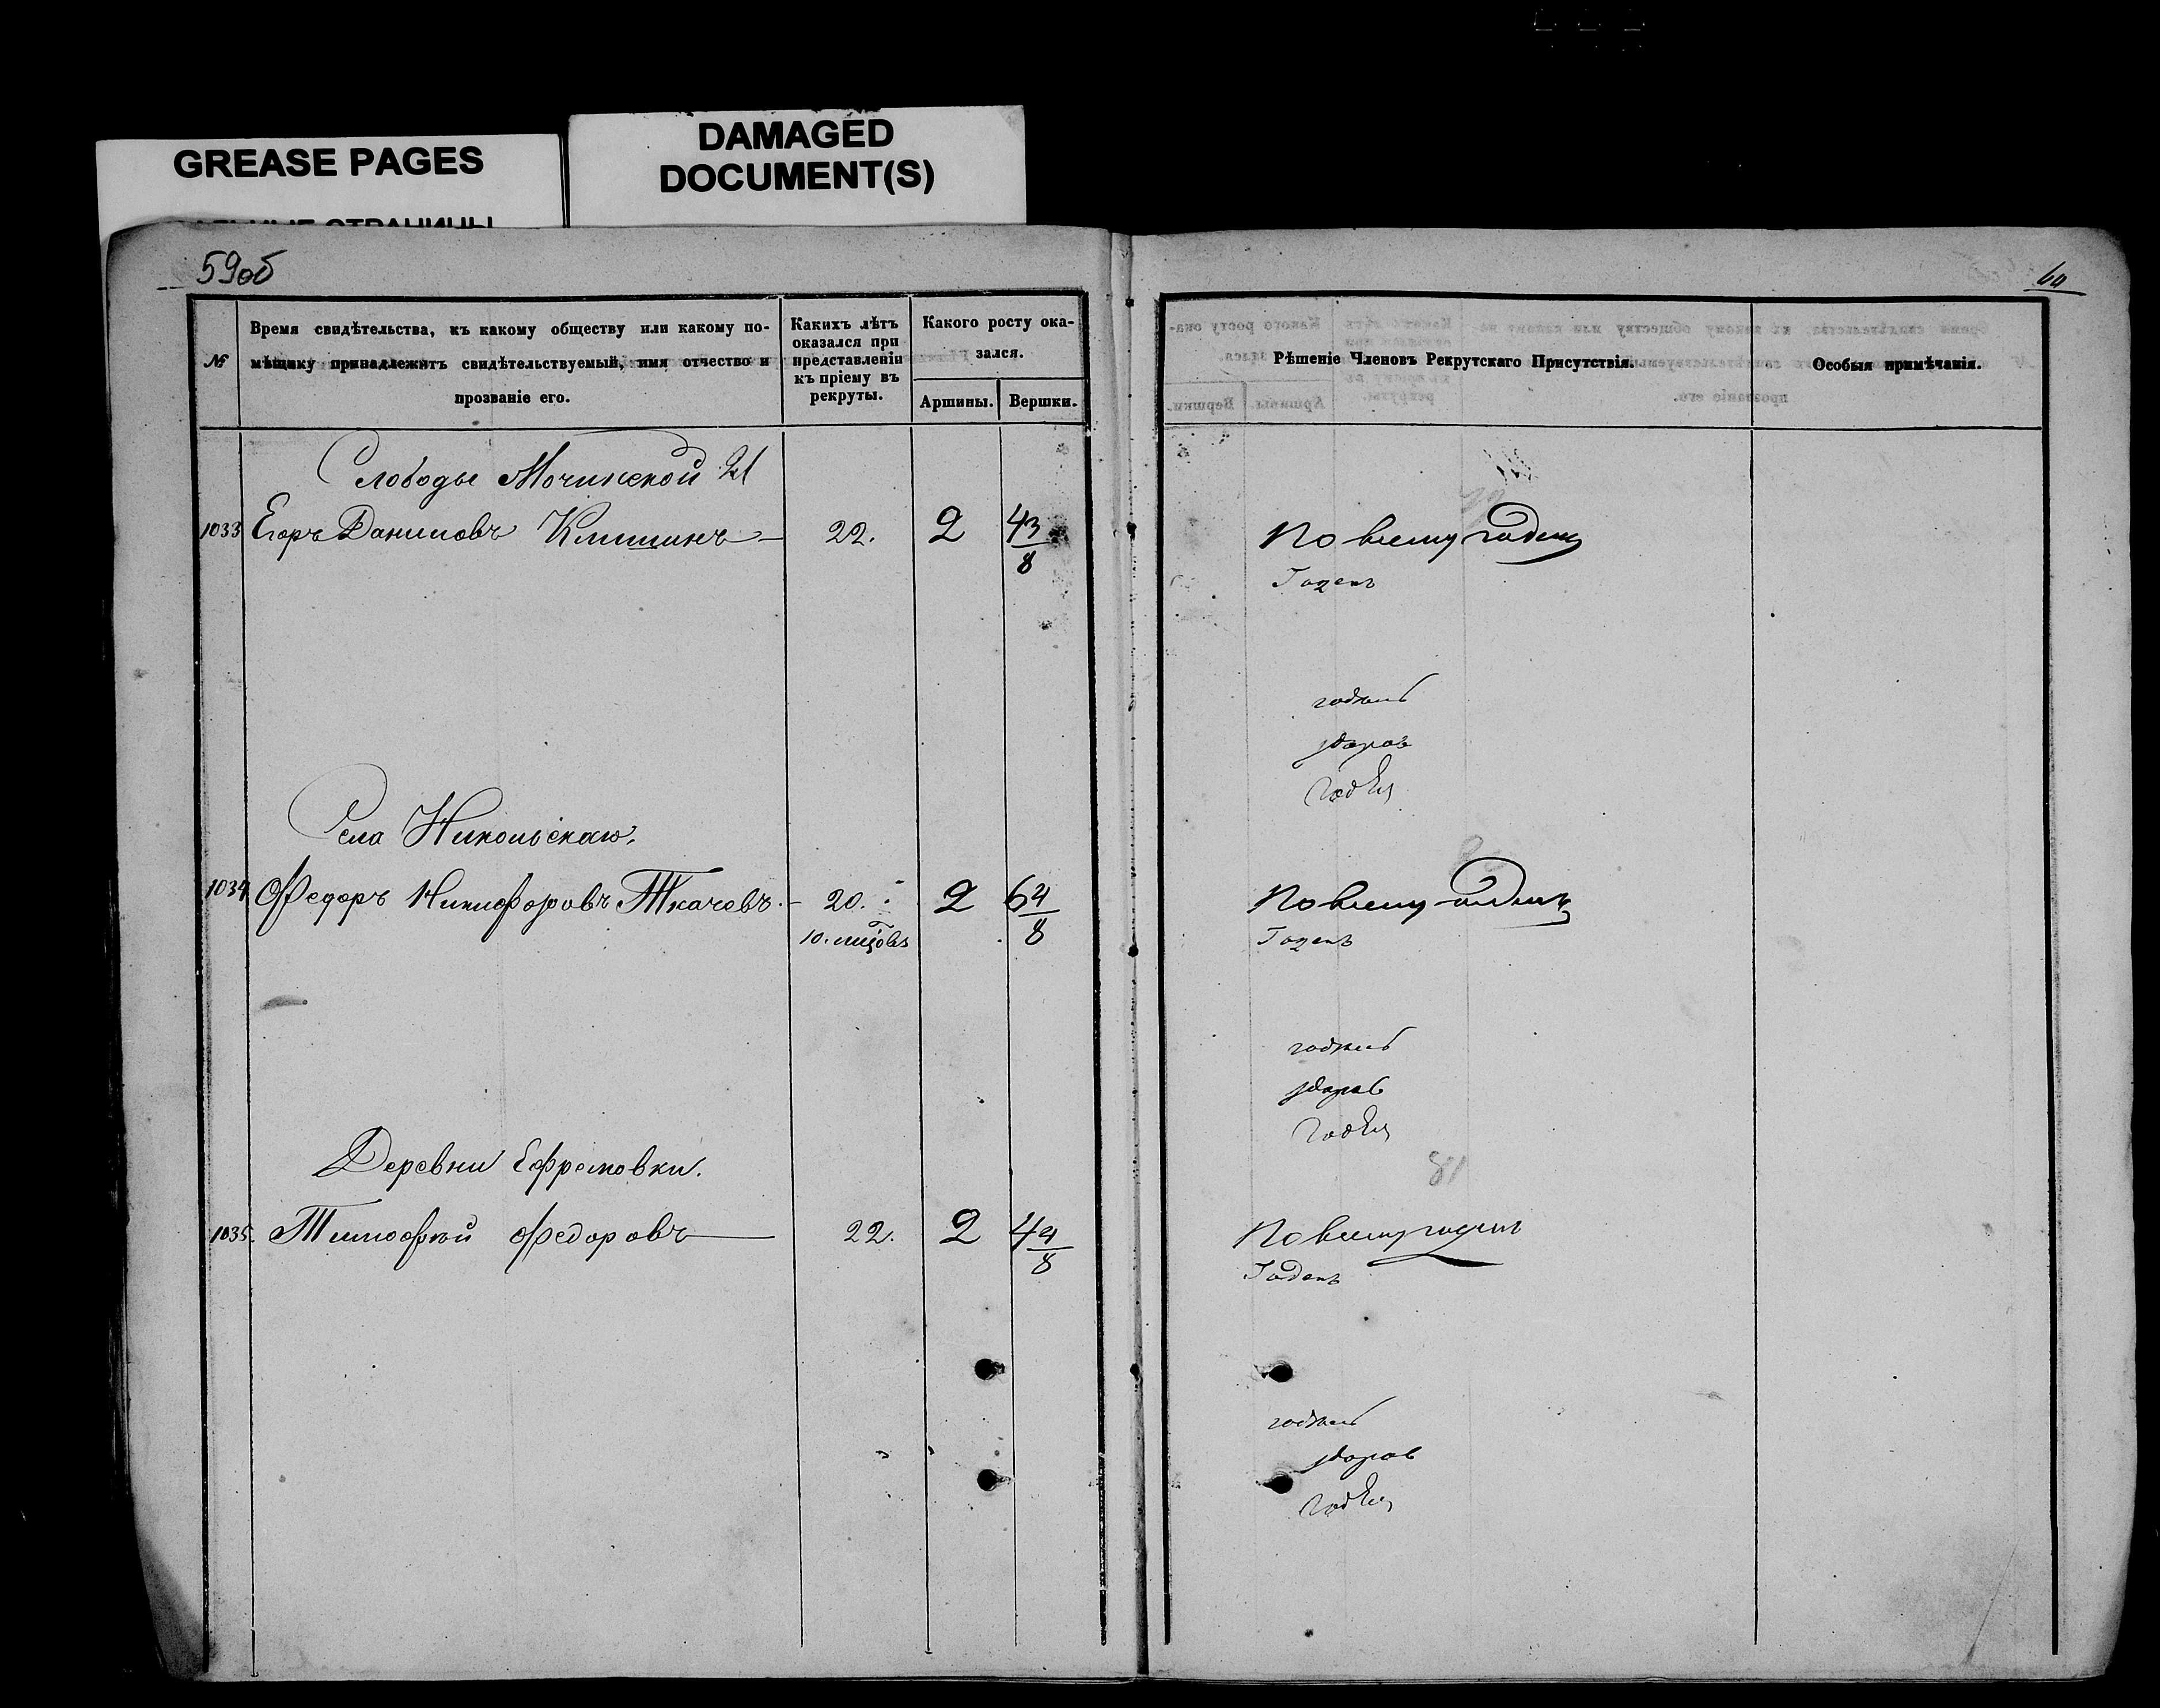 GREASE PAGES
DAMAGED
DOCUMENT(S)
59об
60
№
Время свидѣтельства, къ какому обществу или какому по-
мѣщику принадлежитъ свидѣтельствуемый, имя отчество и
прозваніе его.
Какихъ лѣтъ
оказался при
представленіи
къ пріему въ
рекруты.
Какого росту ока-
зался.
Аршины. Вершки.
Рѣшеніе Членовъ Рекрутскаго Присутствія.
Особыя примѣчанія.
Слободы Мочинской
1033 Егоръ Даниловъ 22. 2 4 3/8 По всему годенъ
Годенъ
годенъ
здоровъ
Годенъ
Села Никольскаго.
1034 Федоръ Никифоровъ Ткачевъ. 20. 2 6 4/8 По всему годенъ
10. Годенъ
годенъ
здоровъ
Годенъ
Деревни Ефремовки.
1035. Тимофѣй Федоровъ 22. 2 4 4/8 По всему годенъ
Годенъ
годенъ
здоровъ
Годенъ